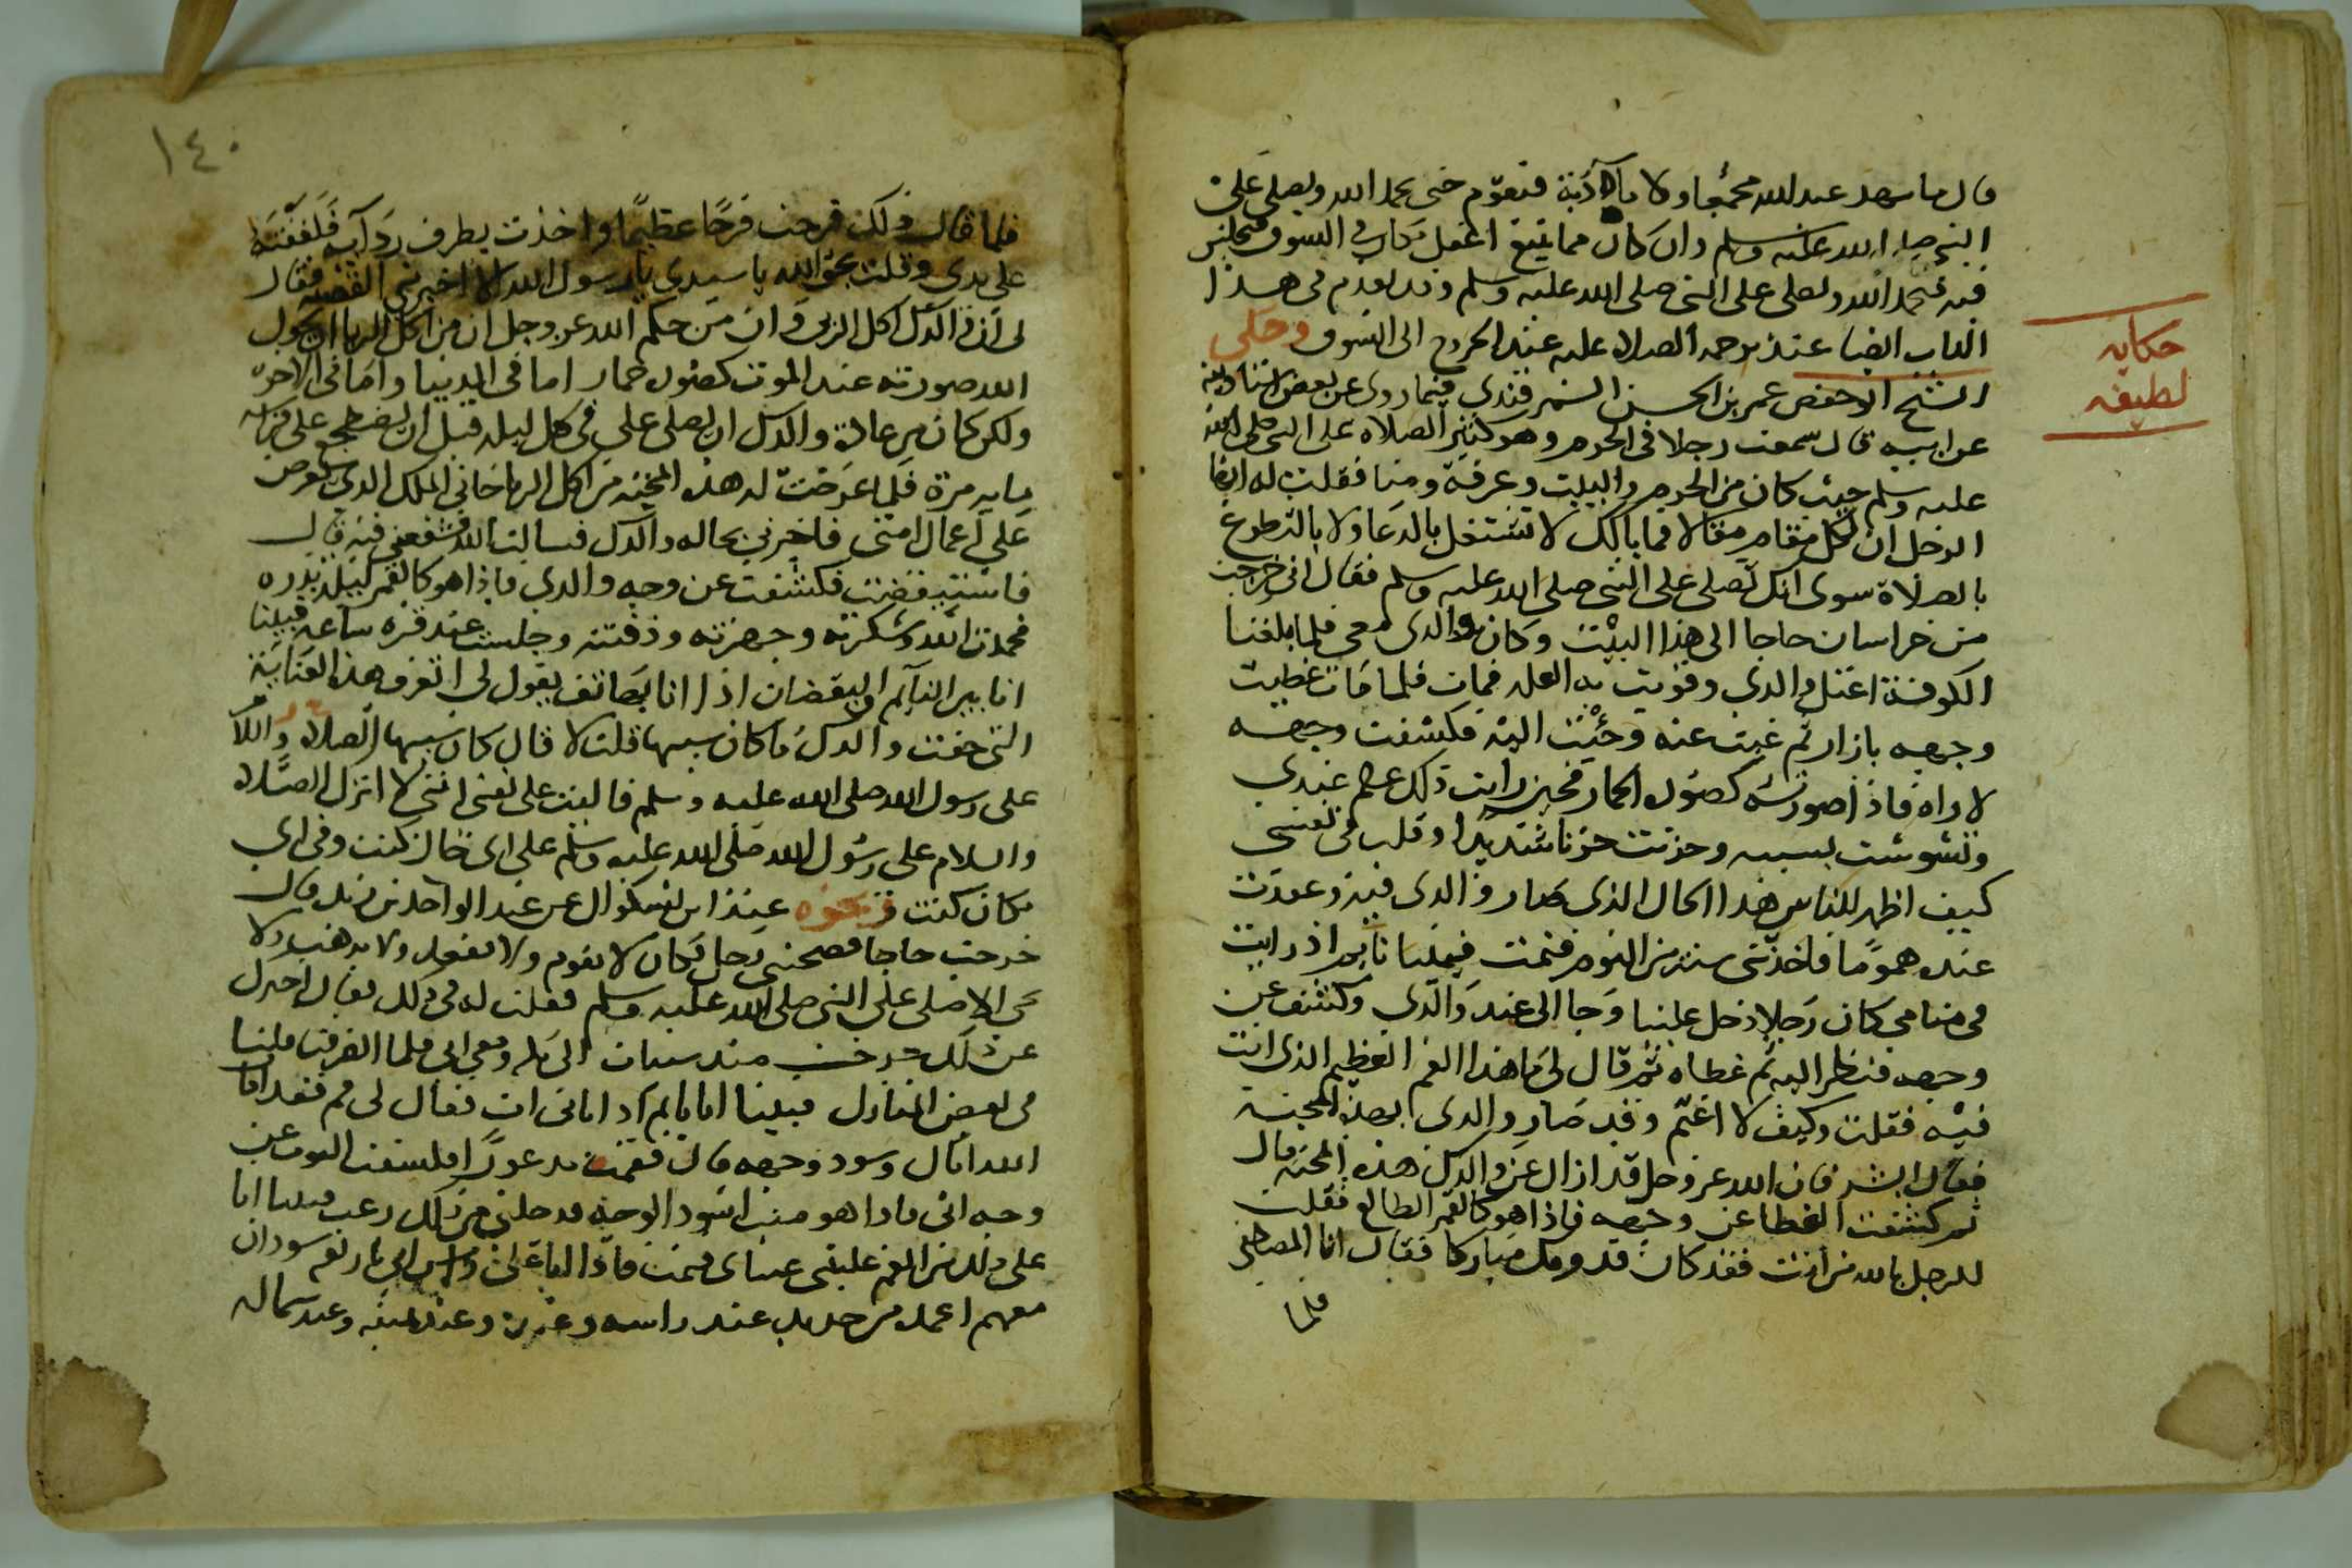 قال ما شهد عبد الله مجمعا ولا مأدبة فيقوم حتى يحمد الله ويصلي على
النبي صلى الله عليه وسلم وان كان مما يتبع اغفل مكان في السوق فيجلس
فيه فيحمد الله ويصلي على النبي صلى الله عليه وسلم وقد تقدم في هذا
الباب ايضا عند ترجمه الصلاه عليه عند الخروج الى السوق وحكى
حكايه
لطيفه
الشيخ ابو حفص عمر بن الحسن السمرقندي فيما روى عن بعض استاديه
عن ابيه قال سمعت رجلا في الحرم وهو كثير الصلاه على النبي صلى الله
عليه وسلم حيث كان من الحرم والبيت وعرفة ومنا فقلت له ايها
الرجل ان لكل مقام مقالا فما بالك لا تشتغل بالدعا ولا بالتطوع
بالصلاة سوى انك تصلي على النبي صلى الله عليه وسلم فقال اني خرجت
من خراسان حاجا الى هذا البيت وكان والدي معي فلما بلغنا
الكوفة اعتل والدي وقويت به العله فمات فلما مات غطيت
وجهه بازار ثم غبت عنه وجئت اليه فكشفت وجهه
لاراه فاذا صورته كصوره الحمار فحين رايت ذلك عظم عندي
وتشوشت بسببه وحزنت حزنا شديدا وقلت في نفسي
كيف اظهر للناس هذا الحال الذي صار والدي فيه وقعدت
عنده همومًا فاخذتني سنة من النوم فنمت فبينا انا نايم اذ رايت
في منامي كان رجلا دخل علينا وجا الى عند والدي وكشف عن
وجهه فنظر اليه ثم غطاه ثم قال لي ما هذا الغم العظيم الذي انت
فيه فقلت وكيف لا اغتم وقد صار والدي بهذه المحنة
فقال ابشر فان الله عز وجل قد ازال عن والدك هذه المحنه قال
ثم كشفت الغطا عن وجهه فاذا هو كالقمر الطالع فقلت
للرجل بالله من انت فقد كان قدومك مباركا فقال انا المصطفى
فلما
١٤٠
فلما قال ذلك فرحت فرحًا عظيمًا واخذت بطرف ردآيه فلففته
على يدي وقلت بحق الله يا سيدي يا رسول الله الا اخبرتني القصه فقال
لي ان والدك اكل الربى وان من حكم الله عز وجل ان من اكل الربا ان يحول
الله صورته عند الموت كصوره حمار اما في الدنيا واما في الاخره
ولكن كان من عادة والدك ان يصلي علي في كل ليله قبل ان يضطجع على فراشه
مايه مرة فلما عرضت له هذه المحنه من اكل الربا جاني الملك الذي يعرض
علي اعمال امتي فاخبرني بحاله والدك فسالت الله فشفعني فيه قال
فاستيقضت فكشفت عن وجه والدي فاذا هو كالقمر ليلة بدره
فحمدت الله وشكرته وجهزته ودفنته وجلست عند قبره ساعه فبينا
انا بين النآيم واليقضان اذا انا بهاتف يقول لي اتعرف هذه العناية
التي حفت والدك ما كان سببها قلت لا قال كان سببها الصلاه والسلام
على رسول الله صلى الله عليه وسلم فاليت على نفسي انني لا اترك الصلاه
والسلام على رسول الله صلى الله عليه وسلم على اي حال كنت وفي اي
مكان كنت ونحوه عند ابن بشكوال عن عبد الواحد بن زيد قال
خرجت حاجا فصحبني رجل فكان لا يقوم ولا يقعد ولا يذهب ولا
يجي الا صلى على النبي صلى الله عليه وسلم فقلت له في ذلك فقال اخبرك
عن ذلك خرجت منذ سنيات الى مكه ومعي ابي فلما انصرفت قلنا
في بعض المنازل فبينا انا نايم اذ اتاني ات فقال لي قم فقد امات
الله اباك وسود وجهه قال فقمت مذعورًا فكشفت الثوب عن
وجه ابي فاذا هو ميت اسود الوجه فدخلني من ذلك رعب فبينا انا
على ذلك من الغم غلبتني عيناى فنمت فاذا على راس ابي اربعه سودان
معهم اعمده من حديد عند راسه وعند وعند يمينه وعند شماله